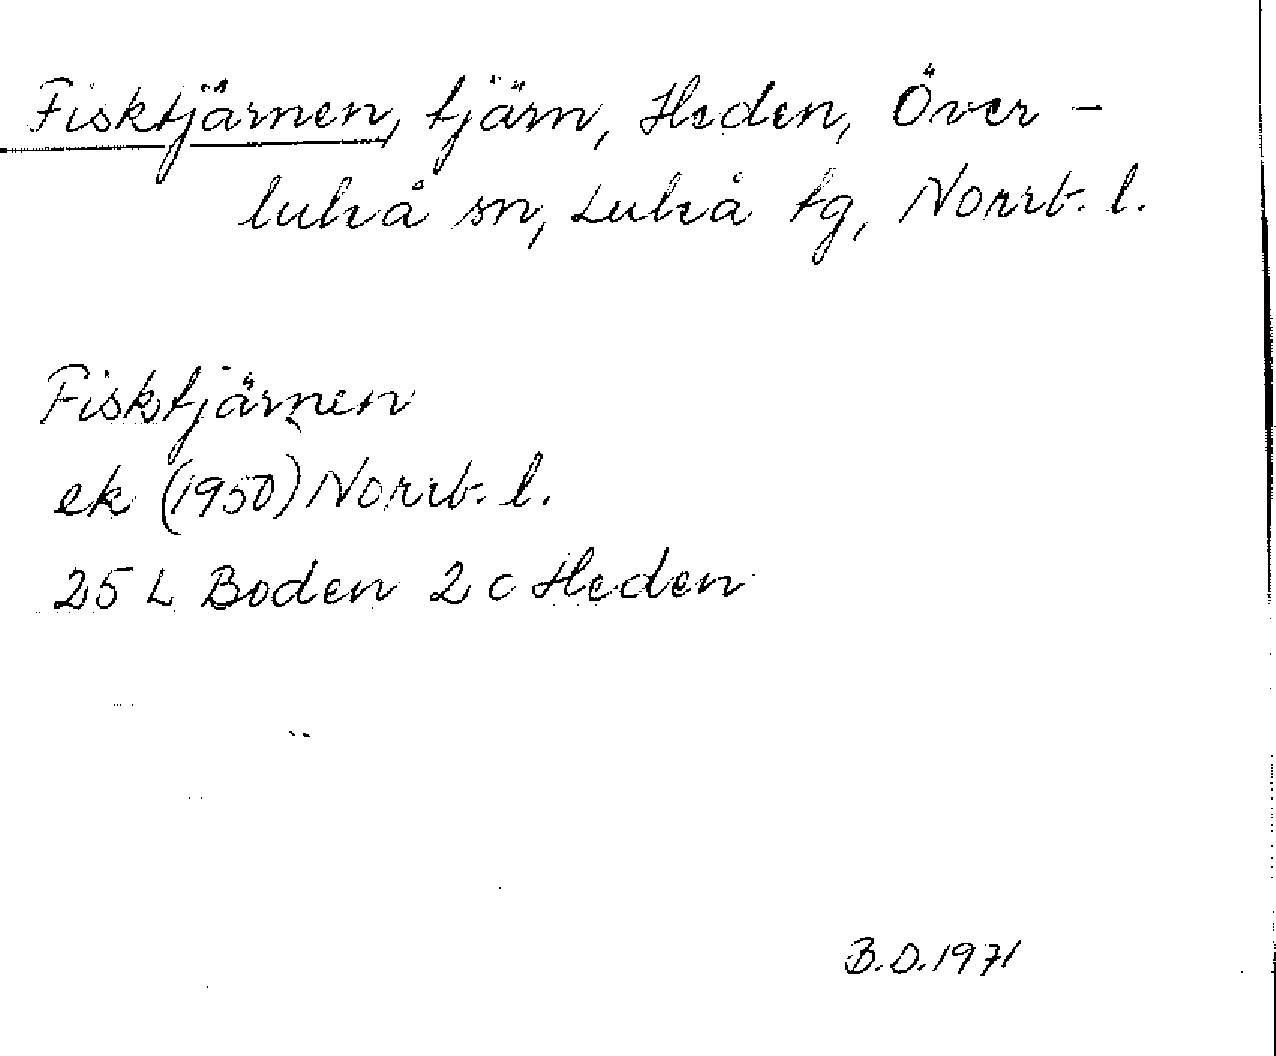 Fisktjärnen, tjärn, Heden, Över-
luleå sn, Luleå tg, Norrb. l.
Fisktjärnen
ek (1950) Norrb. l.
25 L Boden 2 c Heden
B.D. 1971